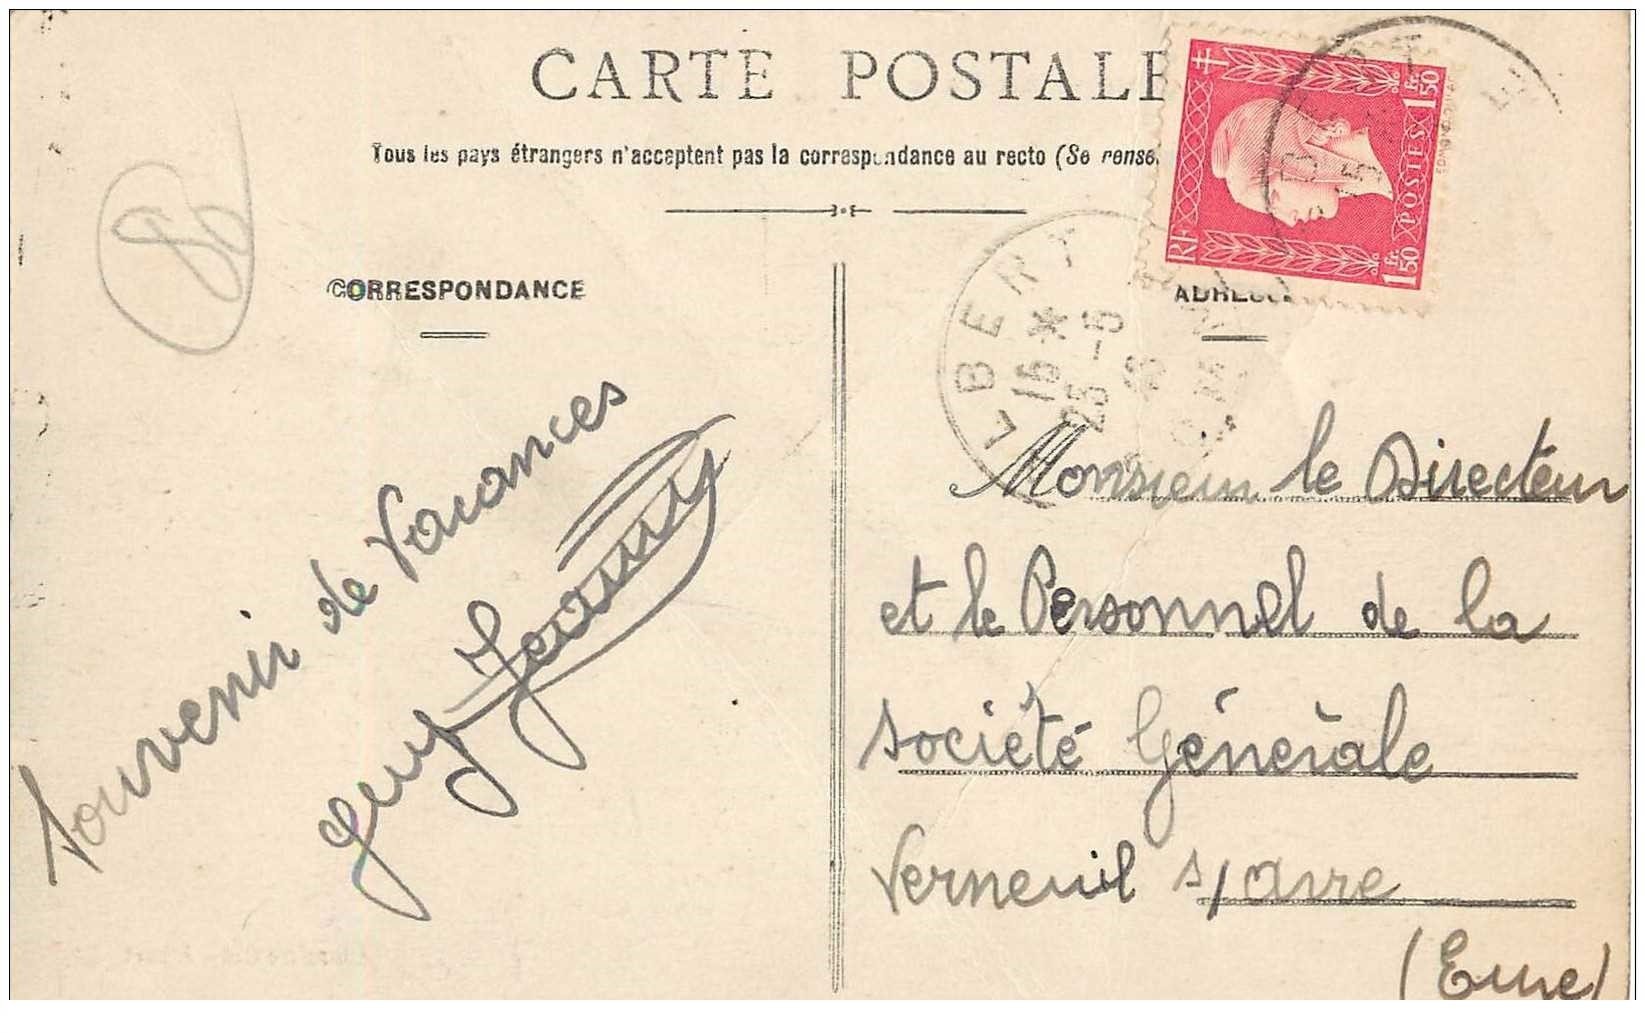 CARTE POSTALE
Tous les pays étrangers n'acceptent pas la correspondance au recto (Se rense
CORRESPONDANCE
RF
POSTES
1 Fr. 50
1 Fr. 50
LBERT
15 *
23 - 5
80
Souvenir de Vacances
Guy
Monsieur le Directeur
et le Personnel de la
Société Générale
Verneuil s/ Avre
(Eure)